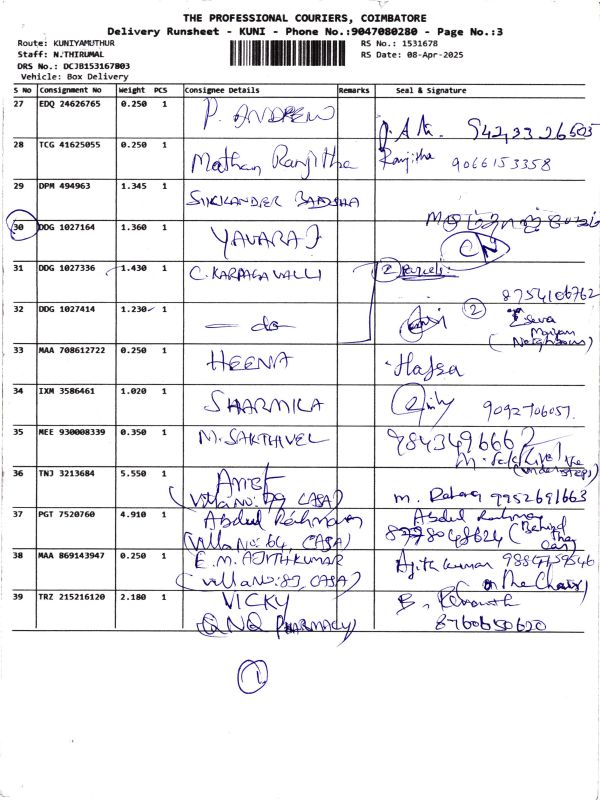 THE PROFESSIONAL COURIERS, COIMBATORE
Delivery Runsheet - KUNI - Phone No.:9047080280 - Page No.:3
Route: KUNIYAMUTHUR
Staff: N.THIRUMAL
DRS No.: DCJB153167803
Vehicle: Box Delivery
RS No.: 1531678
RS Date: 08-Apr-2025
S No Consignment No Weight PCS Consignee Details Remarks Seal & Signature
27 EDQ 24626765 0.250 1 P. ANDREW
28 TCG 41625055 0.250 1 Mathan Ranjitha Ranjitha 9066153358
29 DPM 494963 1.345 1 SIKKANDER BADSHA
30 DDG 1027164 1.360 1 YAVARAJ CN
31 DDG 1027336 1.430 1 C. KARPAGAVALLI 2 Parcels:
8754106762
32 DDG 1027414 1.230 1 — do — 2
(Neighbours)
33 MAA 708612722 0.250 1 HEENA Hafsa
34 IXM 3586461 1.020 1 SHARMILA 9092706057.
35 MEE 930008339 0.350 1 M. SAKTHIVEL
36 TNJ 3213684 5.550 1
(Villa NO: 79 CASA) 9952691663
37 PGT 7520760 4.910 1 Abdul Rahman Abdul Rahman
(Villa NO: 64, CASA) (Behind the car)
38 MAA 869143947 0.250 1 E.M. AJITHKUMAR Ajith kumar
(Villa NO: 89, CASA) (on the Chair)
39 TRZ 215216120 2.180 1 VICKY
PHARMACY) 8760650620
1